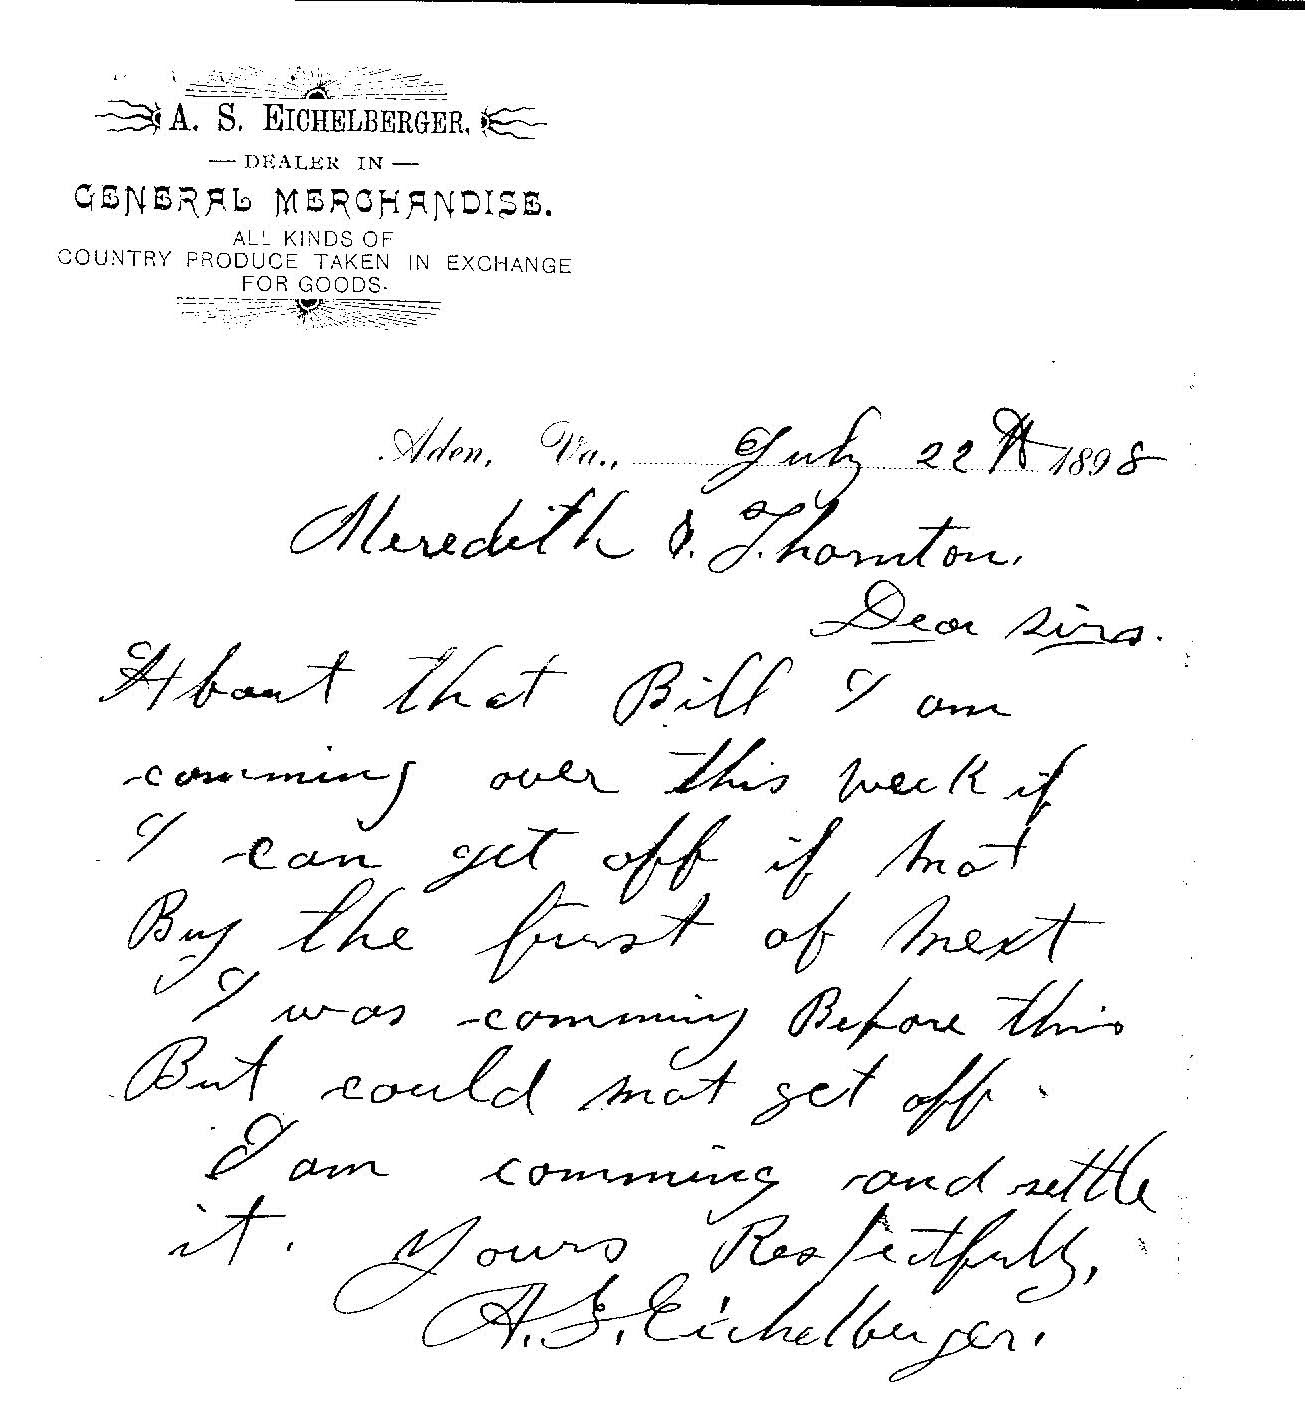 A. S. EICHELBERGER,
— DEALER IN —
GENERAL MERCHANDISE.
ALL KINDS OF
COUNTRY PRODUCE TAKEN IN EXCHANGE
FOR GOODS.
Aden, Va., July 22th 1898
Meredith &. Thornton.
Dear Sirs.
About that Bill I am
comming over this week if
I can get off if not
Buy the furst of next
I was comming Before this
But could not get off.
I am comming and settle
it. Yours Respectfully,
A. S. Eichelberger.